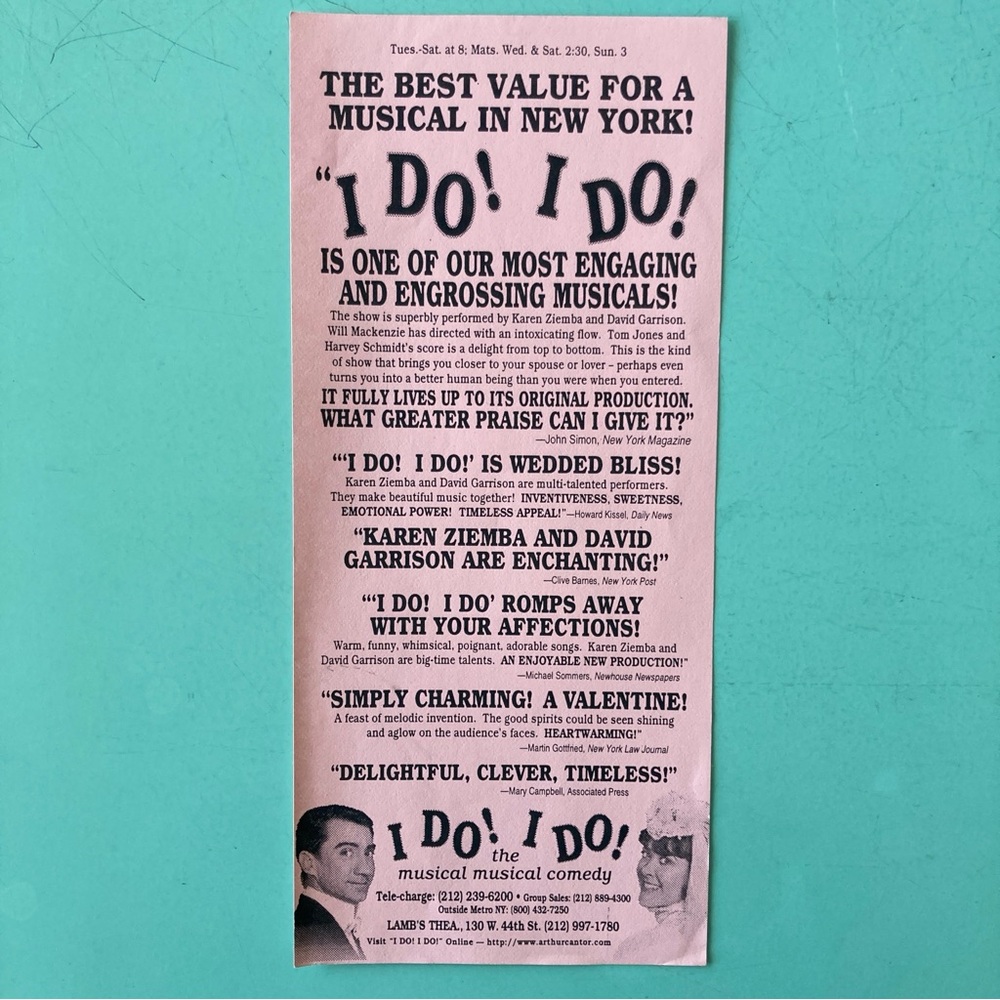 Tues.-Sat. at 8; Mats. Wed. & Sat. 2:30, Sun. 3
THE BEST VALUE FOR A
MUSICAL IN NEW YORK!
“I DO! I DO!
IS ONE OF OUR MOST ENGAGING
AND ENGROSSING MUSICALS!
The show is superbly performed by Karen Ziemba and David Garrison.
Will Mackenzie has directed with an intoxicating flow. Tom Jones and
Harvey Schmidt's score is a delight from top to bottom. This is the kind
of show that brings you closer to your spouse or lover – perhaps even
turns you into a better human being than you were when you entered.
IT FULLY LIVES UP TO ITS ORIGINAL PRODUCTION.
WHAT GREATER PRAISE CAN I GIVE IT?”
—John Simon, New York Magazine
“‘I DO! I DO!’ IS WEDDED BLISS!
Karen Ziemba and David Garrison are multi-talented performers.
They make beautiful music together! INVENTIVENESS, SWEETNESS,
EMOTIONAL POWER! TIMELESS APPEAL!”—Howard Kissel, Daily News
“KAREN ZIEMBA AND DAVID
GARRISON ARE ENCHANTING!”
—Clive Barnes, New York Post
“‘I DO! I DO’ ROMPS AWAY
WITH YOUR AFFECTIONS!
Warm, funny, whimsical, poignant, adorable songs. Karen Ziemba and
David Garrison are big-time talents. AN ENJOYABLE NEW PRODUCTION!”
—Michael Sommers, Newhouse Newspapers
“SIMPLY CHARMING! A VALENTINE!
A feast of melodic invention. The good spirits could be seen shining
and aglow on the audience's faces. HEARTWARMING!”
—Martin Gottfried, New York Law Journal
“DELIGHTFUL, CLEVER, TIMELESS!”
—Mary Campbell, Associated Press
I DO! I DO!
the
musical musical comedy
Tele-charge: (212) 239-6200 • Group Sales: (212) 889-4300
Outside Metro NY: (800) 432-7250
LAMB'S THEA., 130 W. 44th St. (212) 997-1780
Visit "I DO! I DO!" Online — http://www.arthurcantor.com